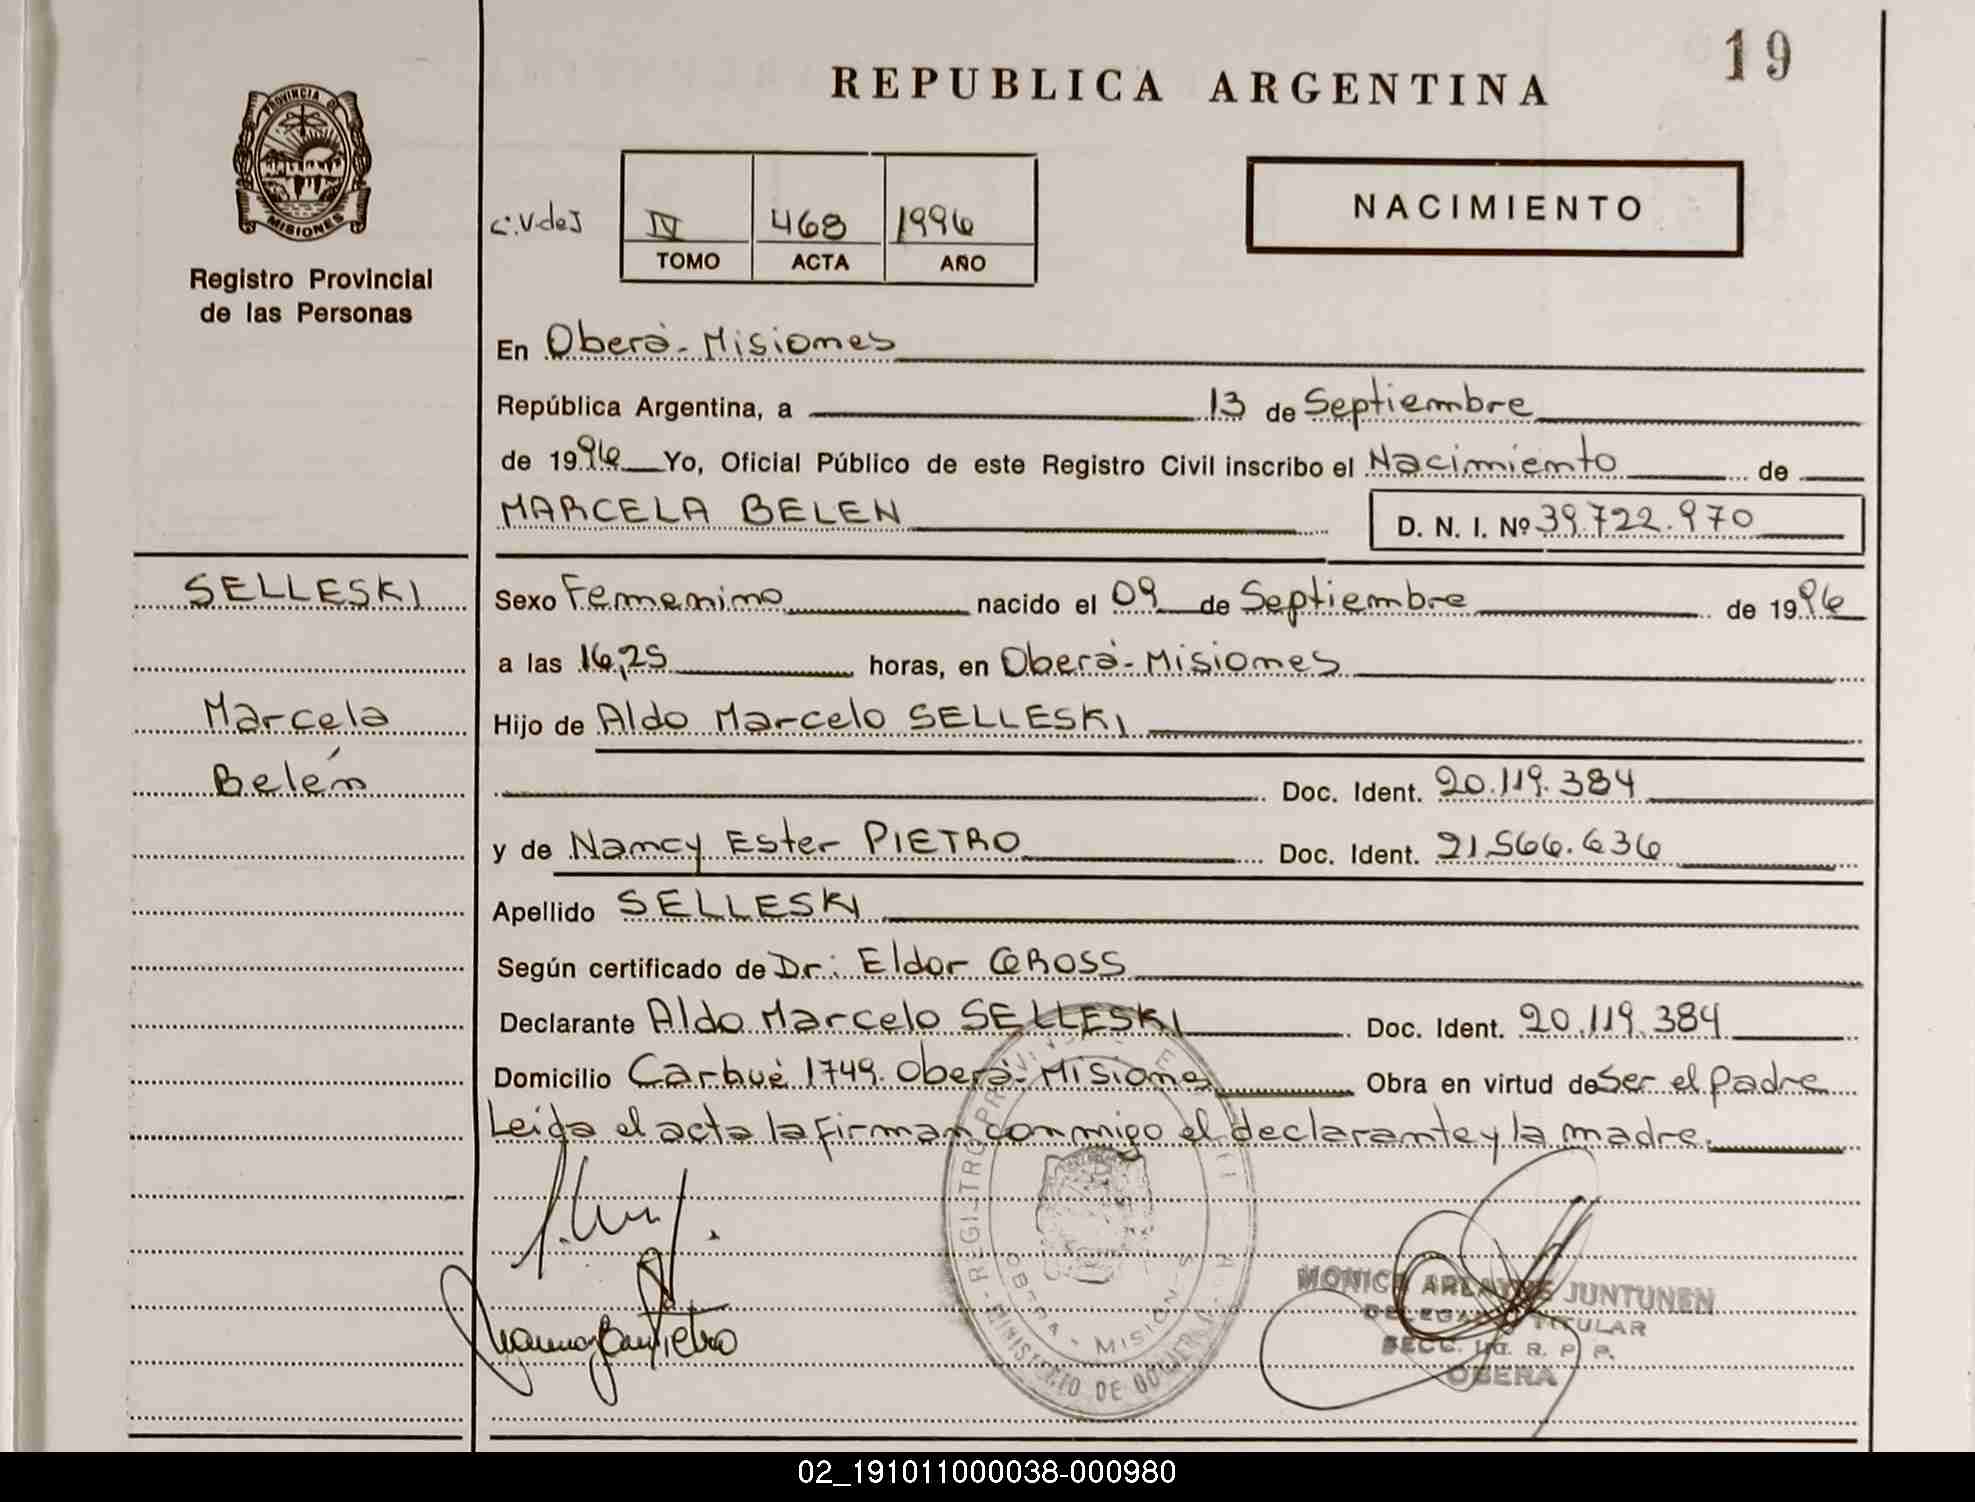 19
REPUBLICA ARGENTINA
PROVINCIA D
MISIONES
Registro Provincial
de las Personas
C.V.deJ
IV 468 1996
TOMO ACTA AÑO
NACIMIENTO
En Oberá - Misiones
República Argentina, a 13 de Septiembre
de 1996 Yo, Oficial Público de este Registro Civil inscribo el Nacimiento de
MARCELA BELEN D. N. I. Nº 39.722.970
SELLESKI
Marcela
Belén
Sexo Femenino nacido el 09 de Septiembre de 1996
a las 16,25 horas, en Oberá - Misiones
Hijo de Aldo Marcelo SELLESKI
Doc. Ident. 20.119.384
y de Nancy Ester PIETRO Doc. Ident. 21.566.636
Apellido SELLESKI
Según certificado de Dr. Eldor GROSS
Declarante Aldo Marcelo SELLESKI Doc. Ident. 20.119.384
Domicilio Carhué 1749. Oberá - Misiones Obra en virtud de Ser el padre
Leida el acta la firman conmigo el declarante y la madre.
REGISTRO PROVINCIAL
MINISTERIO DE GOBIERNO
OBERA - MISIONES
MONICA ARLAYNE JUNTUNEN
DELEGADO TITULAR
SECC. R. P. P.
OBERA
02_191011000038-000980